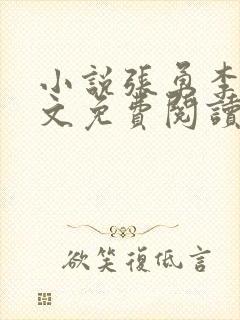 小說張勇李
文免費閱讀
欲笑復低言